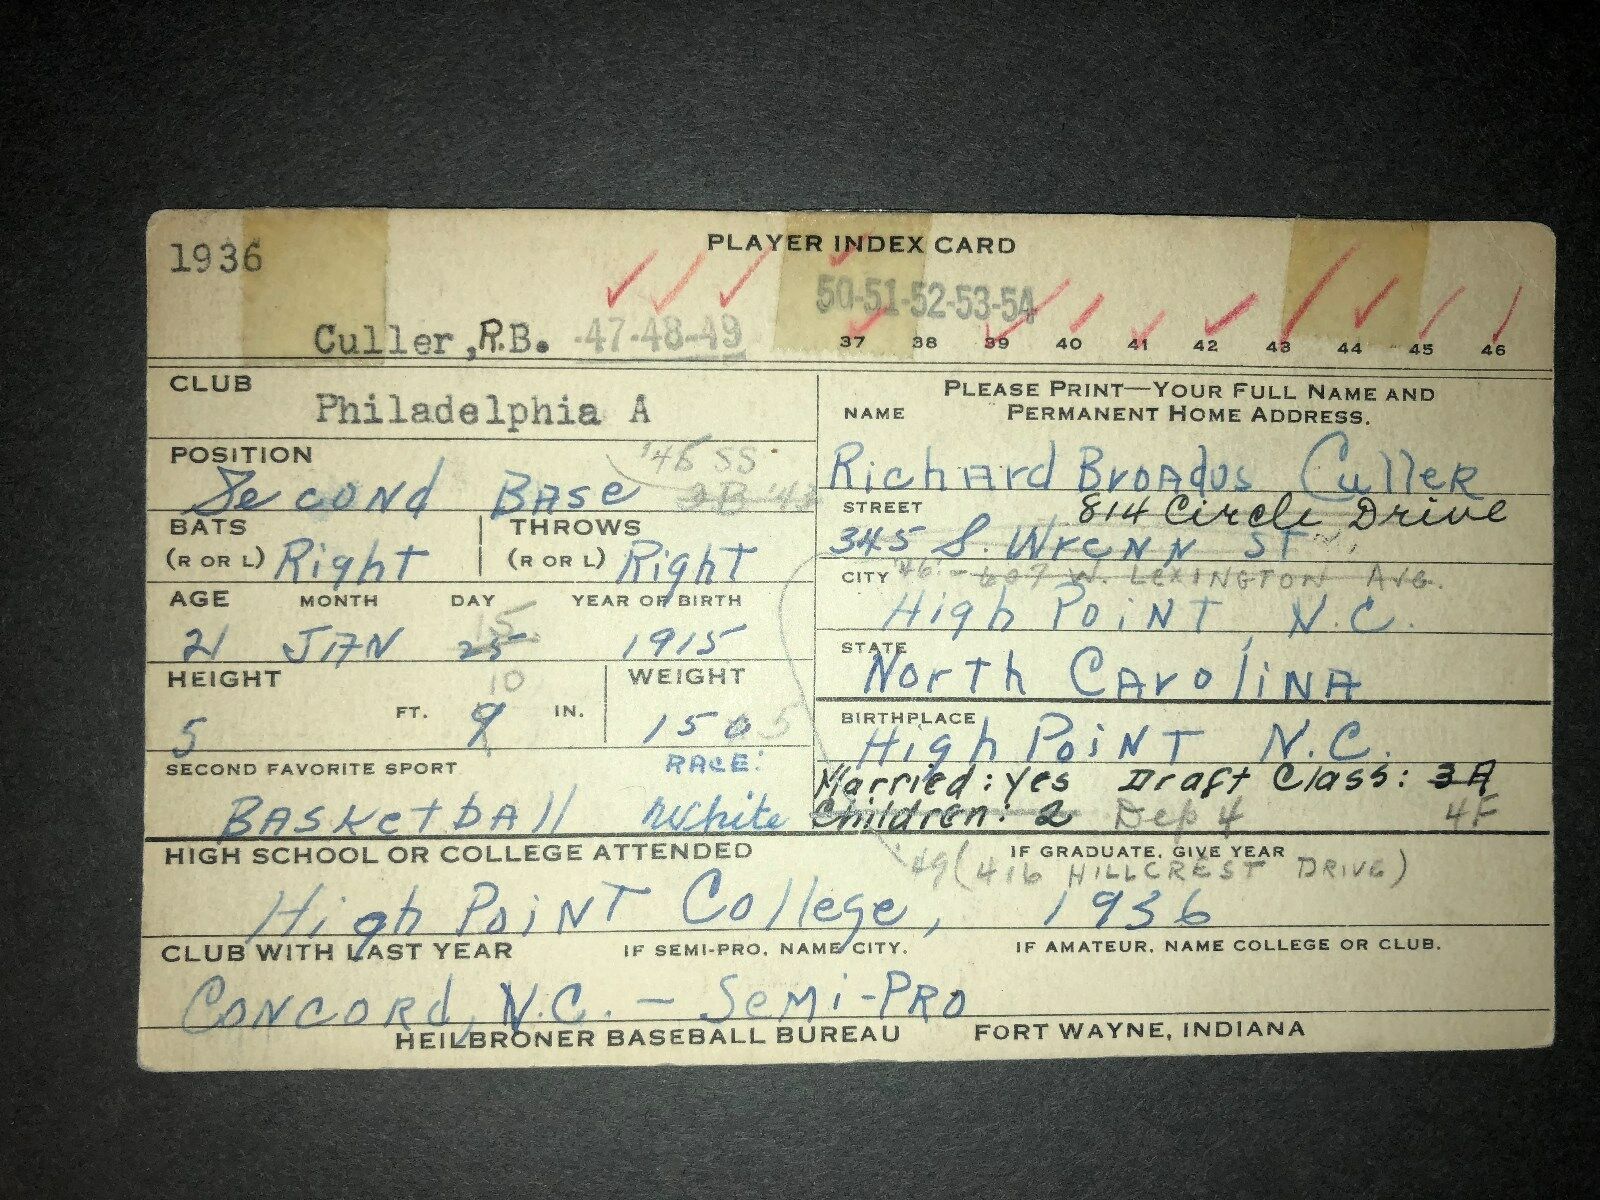 PLAYER INDEX CARD
1936
50-51-52-53-54
Culler, R.B. 47-48-49
37 38 39 40 41 42 43 44 45 46
CLUB
Philadelphia A
PLEASE PRINT—YOUR FULL NAME AND
NAME PERMANENT HOME ADDRESS.
Richard Broadus Culler
POSITION
'45 SS
Second Base 2B
STREET 814 Circle Drive
345 S. Wrenn St
BATS THROWS
(R OR L) Right (R OR L) Right
CITY '46 - 607 W. Lexington Ave.
High Point, N.C.
AGE MONTH DAY YEAR OF BIRTH
15
21 JAN 25 1915
STATE
North Carolina
HEIGHT WEIGHT
10
5 FT. 9 IN. 150 5
BIRTHPLACE
High Point N.C.
SECOND FAVORITE SPORT RACE:
Basketball White
Married: yes Draft Class: 3A
Children: 2 Dep 4 4F
HIGH SCHOOL OR COLLEGE ATTENDED IF GRADUATE, GIVE YEAR
'49 (416 HILLCREST DRIVE)
High Point College, 1936
CLUB WITH LAST YEAR IF SEMI-PRO, NAME CITY. IF AMATEUR, NAME COLLEGE OR CLUB.
Concord, N.C. — Semi-Pro
HEILBRONER BASEBALL BUREAU FORT WAYNE, INDIANA